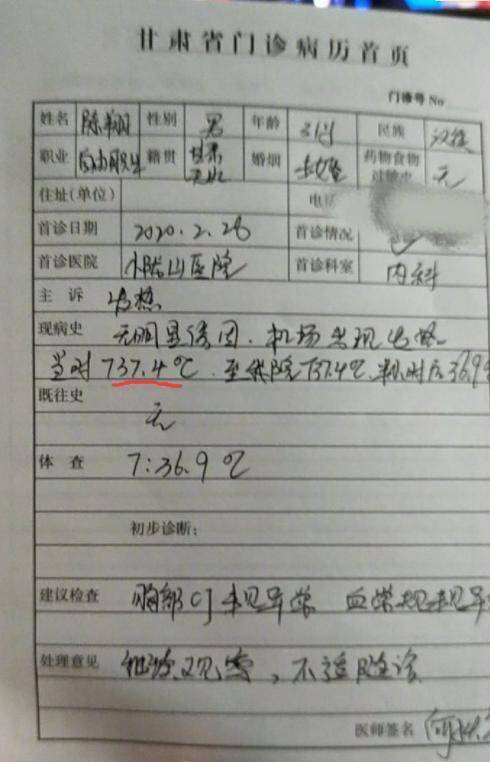 甘肃省门诊病历首页
门诊号 No
姓名 陈翔 性别 男 年龄 31岁 民族 汉族
职业 自由职业 籍贯 甘肃天水 婚姻 未婚 药物食物过敏史 无
住址(单位) 电话
首诊日期 2020.2.26 首诊情况
首诊医院 小陇山医院 首诊科室 内科
主诉 发热
现病史 无明显诱因.机场发现发热
当时 T37.4℃.至我院T37.4℃.半小时后36.9℃
既往史
无
体查 T:36.9℃
初步诊断:
建议检查 胸部CT未见异常 血常规未见异
处理意见 继续观察,不适随诊
医师签名